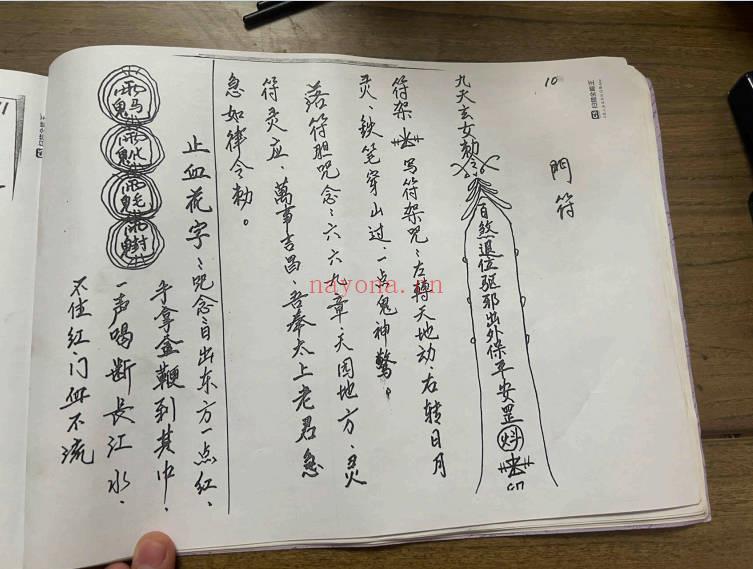 10
門符
九天玄女勅令
百煞退位驱邪出外保平安罡
符架、写符架咒：左轉天地动、右转日月
灵、鉄笔穿山过、一点鬼神驚。
落符胆咒念：六六九章、天园地方、灵
符灵应、萬事吉昌、吾奉太上老君急
急如律令勅。
止血花字：咒念：日出东方一点红、
手拿金鞭到其中、
一声喝断長江水、
不住红门血不流
nayona.cn